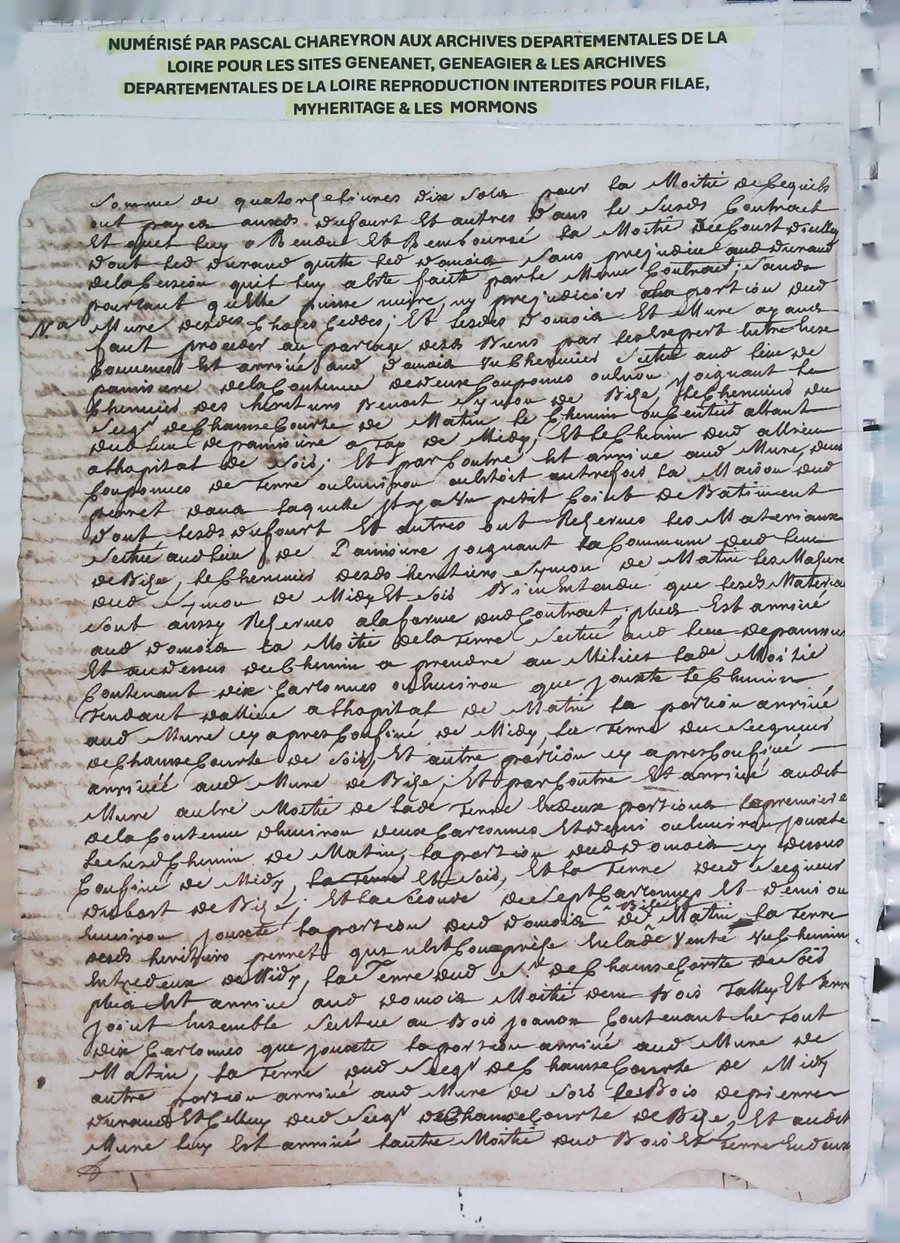 NUMÉRISÉ PAR PASCAL CHAREYRON AUX ARCHIVES DEPARTEMENTALES DE LA
LOIRE POUR LES SITES GENEANET, GENEAGIER & LES ARCHIVES
DEPARTEMENTALES DE LA LOIRE REPRODUCTION INTERDITES POUR FILAE,
MYHERITAGE & LES MORMONS
Somme de quatorze livres dix sols pour la Moitié de Ce quils
ont payes ausds dufourt Et autres dans le susds Contract
Et quil luy a Rendu Et Remboursé la Moitié du Coust
dont led durand quitte led damois sans prejudice aud durand
dela Cession quil luy a esté faitte par le Mesme Contract, sans
pourtant quelle puisse nuire, ny prejudicier ala portion dud
Mure desdes Choses Ceddes; Et lesds damois Et Mure ayans
faict proceder au partage desds Biens par
Est arrivé aud damois Chenevier scitué aud lieu de
pamisiere dela Contenue de deux Couponnes ou Joignant le
Chenevier des heritiers Benoit Symon de Bize, le Chenevier du
Seigr de Chamse Courte de Matin le Chemin ou allant
dud lieu de pamisiere a de Midy, Et le Chemin dud
a lhopital de soir; Et par Contre Est arrivé aud Mure, deux
Couponnes de Terre ou lenviron ou Estoit autrefois la Maison dud
perret dans laquelle Il y a un petit de Batiment
dont lesds dufourt Et autres ont Reserves les Materiaux
scitué aud lieu de Pamisiere joignant la Commune dud lieu
de Bize, le Chenevier desds heretiers Symon de Matin les Masure
dud Symon de Midy Et soir Bien Entendu que lesds Materiaux
sont aussy Reserves a la forme dud Contract; plus Est arrivé
aud damois la Moitié dela Terre scitué aud lieu de
Et au dessus du Chemin a prendre au Millier lade Moitié
Contenant dix Cartonnes ou lenviron que jouxte le Chemin
Tendant a lhopital de Matin la portion arrivé
aud Mure cy apres Confiné de Midy, la Terre du seigneur
de Chamse Courte de soir, Et autre portion cy apres Confiné
arrivée aud Mure de Bize; Et par Contre Est arrivé audit
Mure autre Moitié de lade Terre En deux portions la premiere
dela Contenue denviron deux Cartonnes Et demi ou lenviron jouxte
le susd Chemin de Matin, la portion dud damois cy dessus
Confiné de Midy, Et soir, Et la Terre dud seigneur
de Bize; Et la seconde de sept Cartonnes Et demi ou
Environ jouxte la portion dud damois de Matin, la Terre
desds heritiers perret quil Est Comprise En lade Vente Chemin
Entredeux de Midy, la Terre dud sr de Chamse Courte de soir
plus Est arrivé aud damois Moitié dun Bois Talley Et Terre
joint Ensemble scitué au Bois joanon Contenant le tout
dix Cartonnes que jouxte la portion arrivé aud Mure de
Matin, la Terre dud Seigr de Chamse Courte de Midy
autre portion arrivé aud Mure de soir le Bois de pierre
durand Et Celluy dud Seigr de Chamse Courte de Bize, Et audit
Mure luy Est arrivé lautre Moitié dud Bois Et Terre En deux